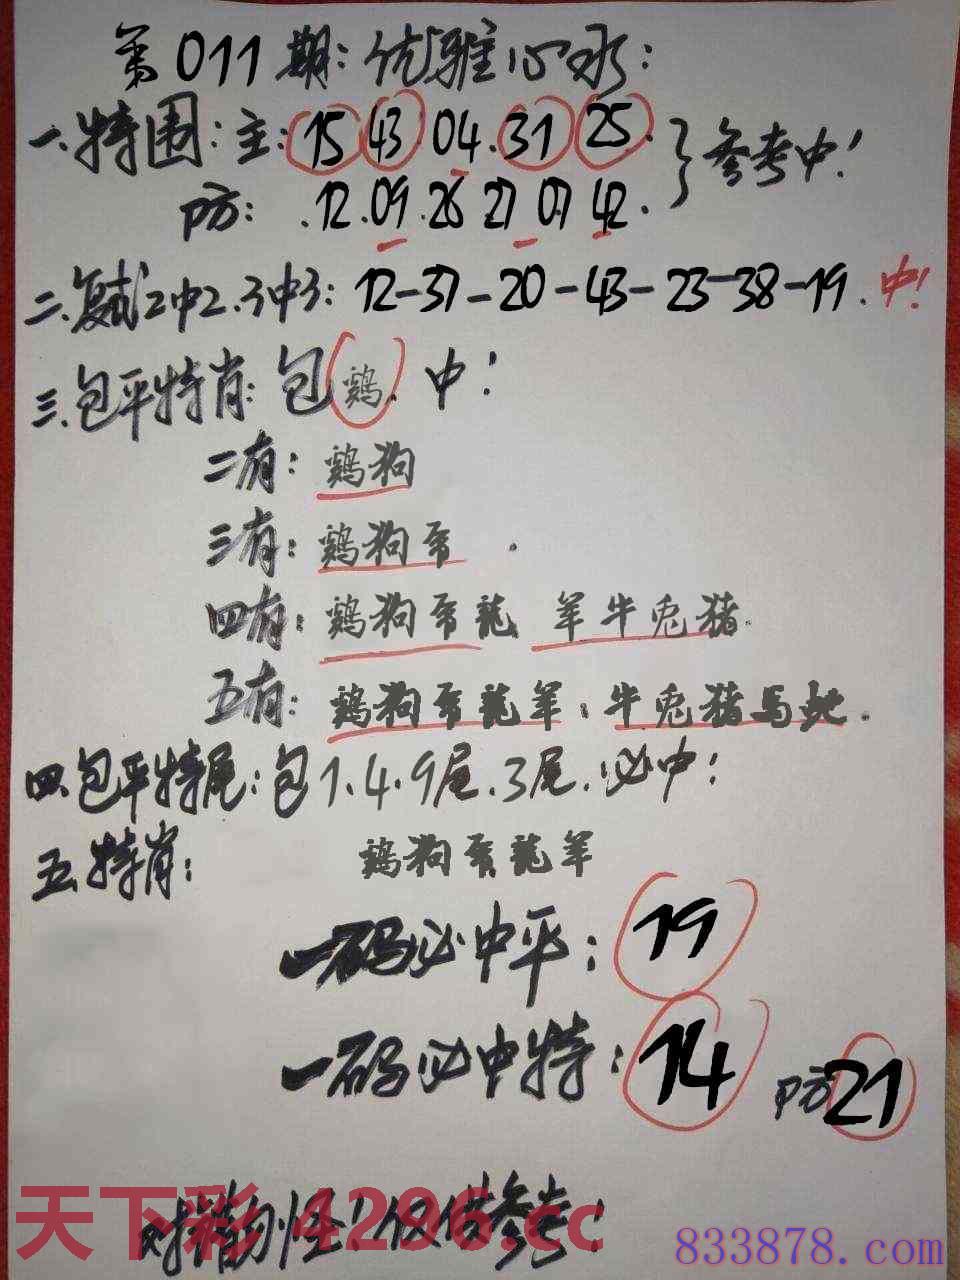 第011期：优雅心水：
一.特围：主：15.43.04.31.25. }参考中！
防：.12.09.26 27 07 42.
二.复式2中2.3中3：12-37-20-43-23-38-19.中！
三.包平特肖：包鸡.中！
二有：鸡狗
三有：鸡狗帝.
四有：鸡狗帝龍 羊牛兎猪.
五有：鸡狗帝龍羊.牛兎猪马蛇.
四.包平特尾：包1.4.9尾.3尾.必中！
五.特肖：鸡狗帝龍羊
一码必中平：19
一码必中特：14 防21
对错勿怪！仅供参考！
天下彩 4296.cc
833878.com